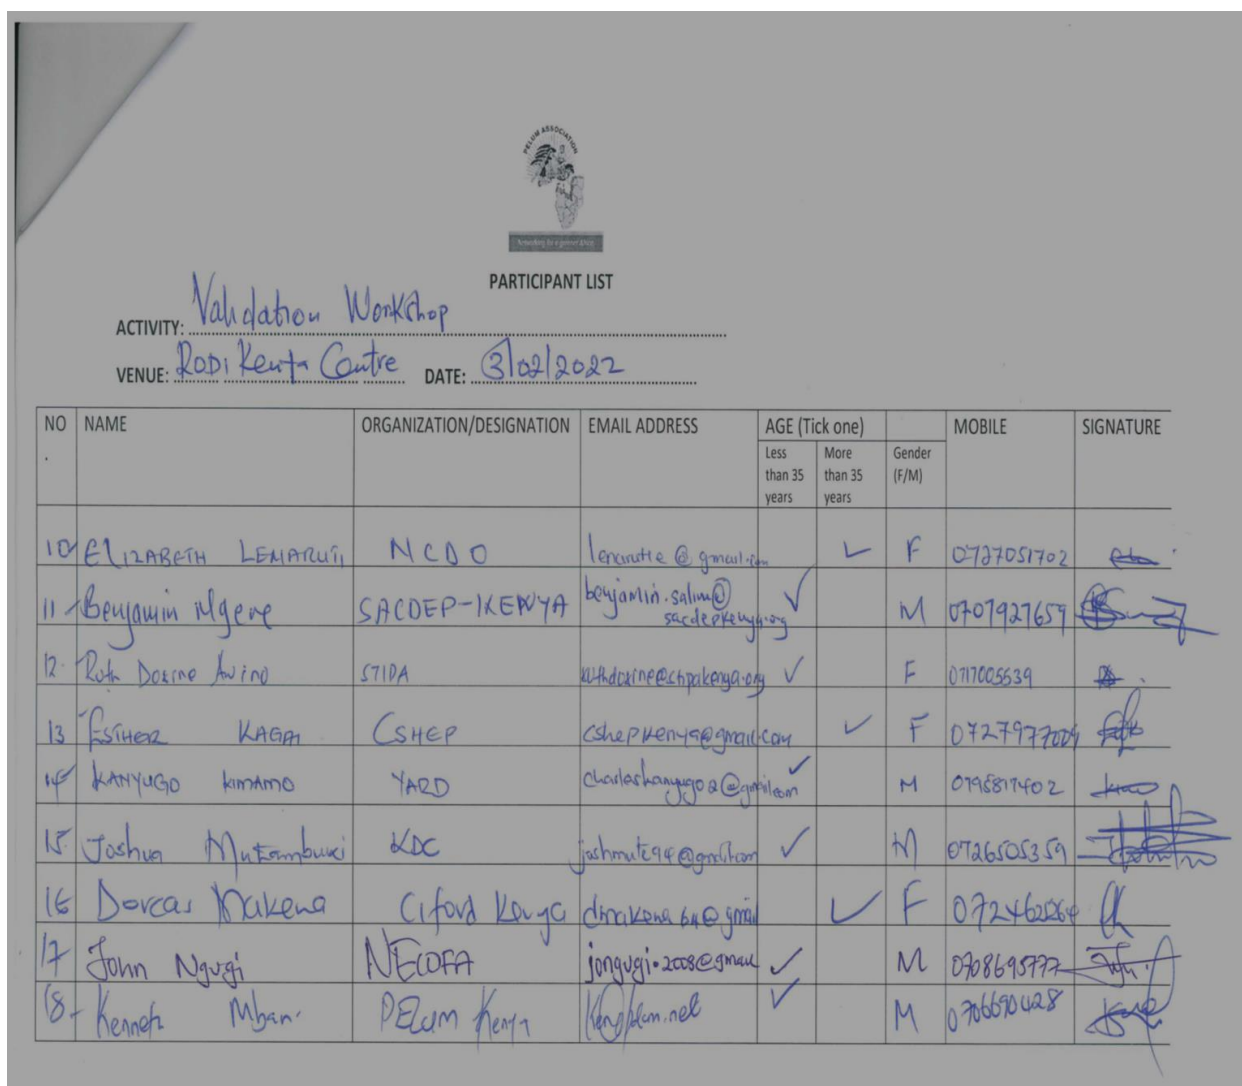 PELUM ASSOCIATION
PARTICIPANT LIST
ACTIVITY: Validation Workshop
VENUE: RODI Kenya Centre DATE: 3/02/2022
NO. NAME ORGANIZATION/DESIGNATION EMAIL ADDRESS AGE (Tick one) MOBILE SIGNATURE
Less than 35 years More than 35 years Gender (F/M)
10 ELIZABETH LEMARUTI NCDO @gmail.com ✓ F 0727051702
11 Benjamin SACDEP-KENYA benjamin.salim@sacdepkenya.org ✓ M 0707927659
12. Ruth Dorine Awino STIDA ✓ F 0717005539
13 ESTHER KAGAI CSHEP cshepkenya@gmail.com ✓ F 0727977009
14 KANYUGO KIMAMO YARD charleskanyugo2@gmail.com ✓ M 0795817402
15. Joshua Mutambuki KDC joshmute94@gmail.com ✓ M 0726505359
16 Dorcas Makena Ciford Kenya dmakena64@gmail ✓ F
17 John Ngugi NECOFA jongugi.2008@gmail ✓ M 0708695777
18 Kenneth PELUM Kenya ✓ M 0706690428